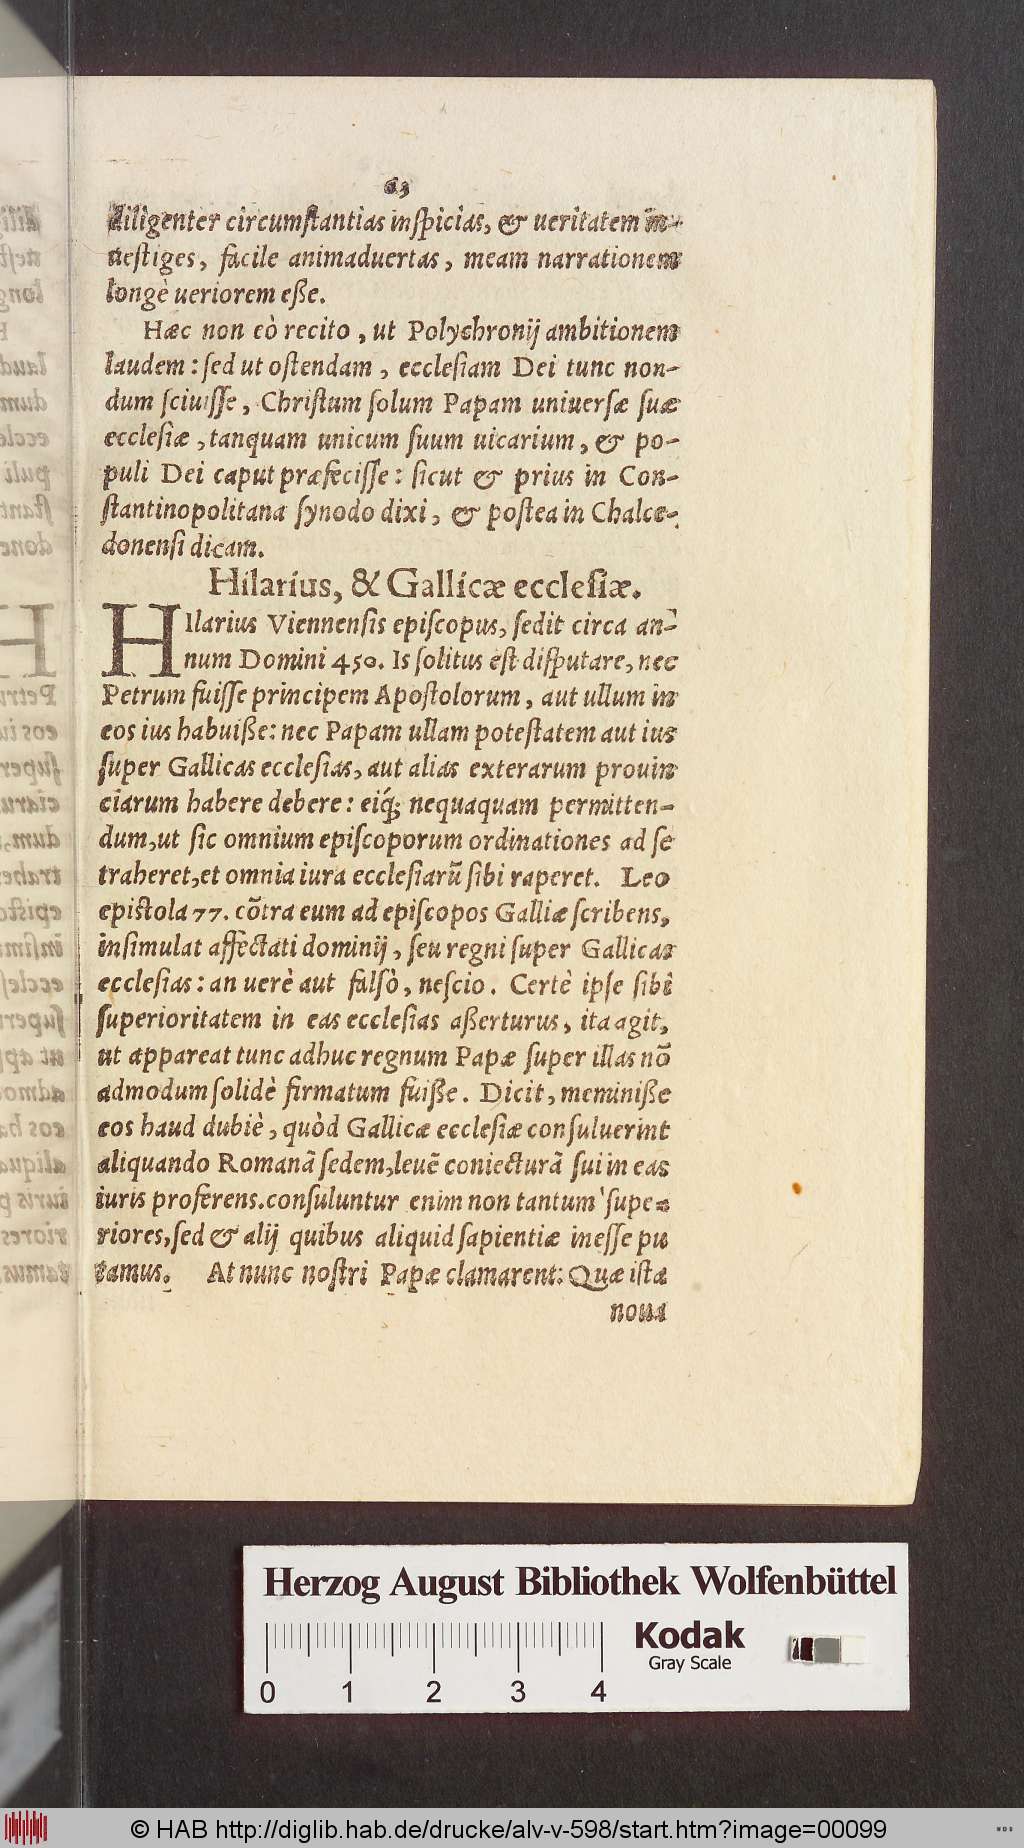 63
diligenter circumſtantias inſpicias, & ueritatem in-
ueſtiges, facile animaduertas, meam narrationem
longè ueriorem eſſe.
Hæc non eò recito, ut Polychronij ambitionem
laudem: ſed ut oſtendam, eccleſiam Dei tunc non-
dum ſciuiſſe, Chriſtum ſolum Papam uniuerſæ ſuæ
eccleſiæ, tanquam unicum ſuum uicarium, & po-
puli Dei caput præfeciſſe: ſicut & prius in Con-
ſtantinopolitana ſynodo dixi, & poſtea in Chalce-
donenſi dicam.
Hilarius, & Gallicæ eccleſiæ.
HIlarius Viennenſis epiſcopus, ſedit circa an-
num Domini 450. Is ſolitus eſt diſputare, nec
Petrum fuiſſe principem Apoſtolorum, aut ullum in
eos ius habuiße: nec Papam ullam poteſtatem aut ius
ſuper Gallicas eccleſias, aut alias exterarum prouin
ciarum habere debere: eiq́; nequaquam permitten-
dum, ut ſic omnium epiſcoporum ordinationes ad ſe
traheret, et omnia iura eccleſiarũ ſibi raperet. Leo
epiſtola 77. cõtra eum ad epiſcopos Galliæ ſcribens,
inſimulat affectati dominij, ſeu regni ſuper Gallicas
eccleſias: an uerè aut falſò, neſcio. Certè ipſe ſibi
ſuperioritatem in eas eccleſias aßerturus, ita agit,
ut appareat tunc adhuc regnum Papæ ſuper illas nõ
admodum ſolidè firmatum fuiße. Dicit, meminiße
eos haud dubiè, quòd Gallicæ eccleſiæ conſuluerint
aliquando Romanã ſedem, leuẽ coniecturã ſui in eas
iuris proferens. conſuluntur enim non tantum ſupe-
riores, ſed & alij quibus aliquid ſapientiæ ineſſe pu
tamus. At nunc noſtri Papæ clamarent: Quæ iſta
noua
Herzog August Bibliothek Wolfenbüttel
Kodak
Gray Scale
0 1 2 3 4
© HAB http://diglib.hab.de/drucke/alv-v-598/start.htm?image=00099